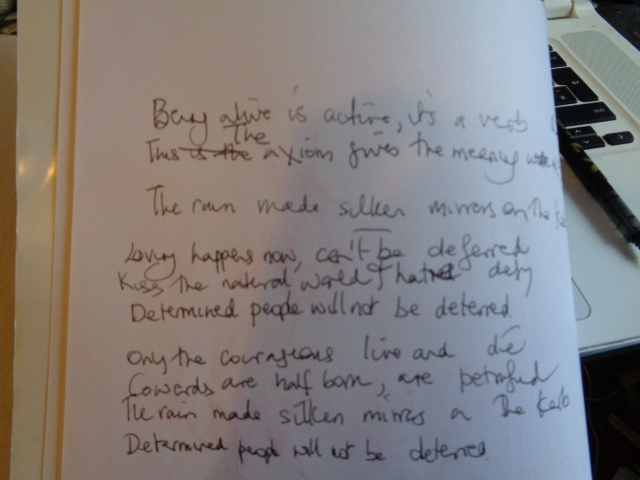 Being alive is active, it's a verb
The
Thus is the axiom gives the meaning
The rain made silken mirrors on the
Loving happens now, can't be deferred
Kiss the natural world & hatred defy
Determined people will not be deterred.
Only the courageous live and die
Cowards are half born, are petrified
The rain made silken mirrors on the kerb
Determined people will not be deterred.